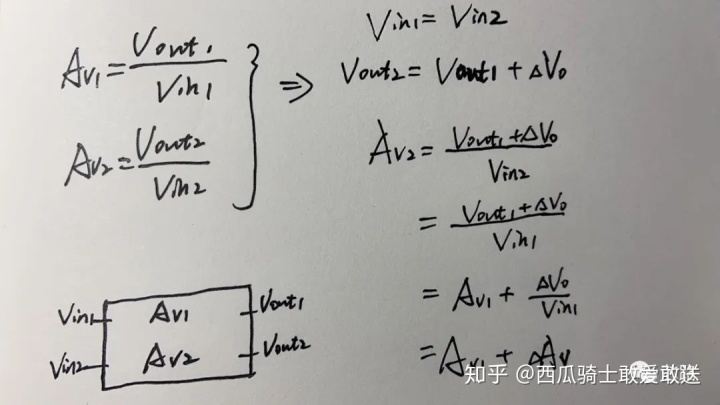 Av1 = Vout1 / Vin1
Av2 = Vout2 / Vin2
} ⇒
Vin1 = Vin2
Vout2 = Vout1 + ΔVo
Av2 = (Vout1 + ΔVo) / Vin2
= (Vout1 + ΔVo) / Vin1
= Av1 + ΔVo / Vin1
= Av1 + ΔAv
Vin1 Av1 Vout1
Vin2 Av2 Vout2
知乎 @西瓜骑士敢爱敢送